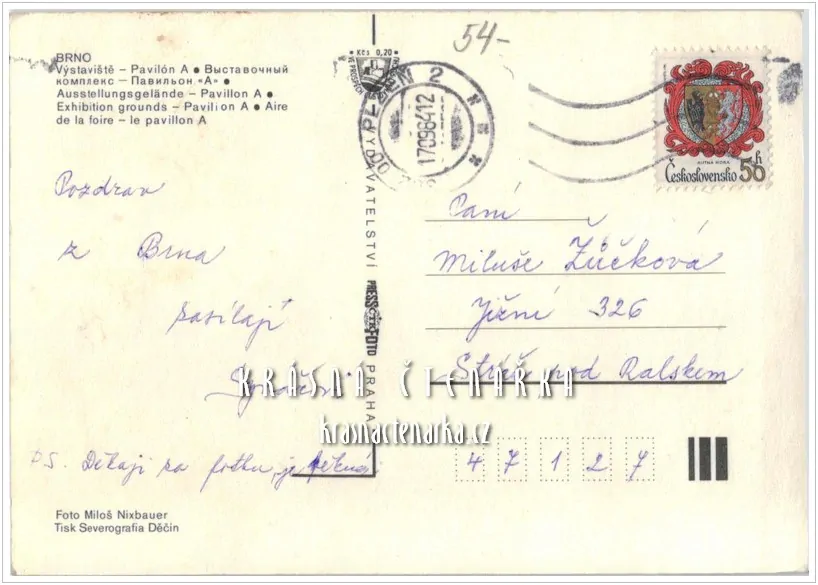 54-
BRNO
Výstaviště – Pavilón A ● Выставочный
комплекс – Павильон «А» ●
Ausstellungsgelände – Pavillon A ●
Exhibition grounds – Pavilion A ● Aire
de la foire – le pavillon A
Kčs 0,20
PLZEŇ 2
17098412
KUTNÁ HORA
Československo 50 h
Pozdrav
z Brna
zasílají
PS. Děkaji za fotku, je pěkná
VYDAVATELSTVÍ PRESSFOTO PRAHA
Paní
Miluše Žůčková
Jižní 326
Stráž pod Ralskem
47127
KRÁSNÁ ČTENÁRKA
krasnactenarka.cz
Foto Miloš Nixbauer
Tisk Severografia Děčín